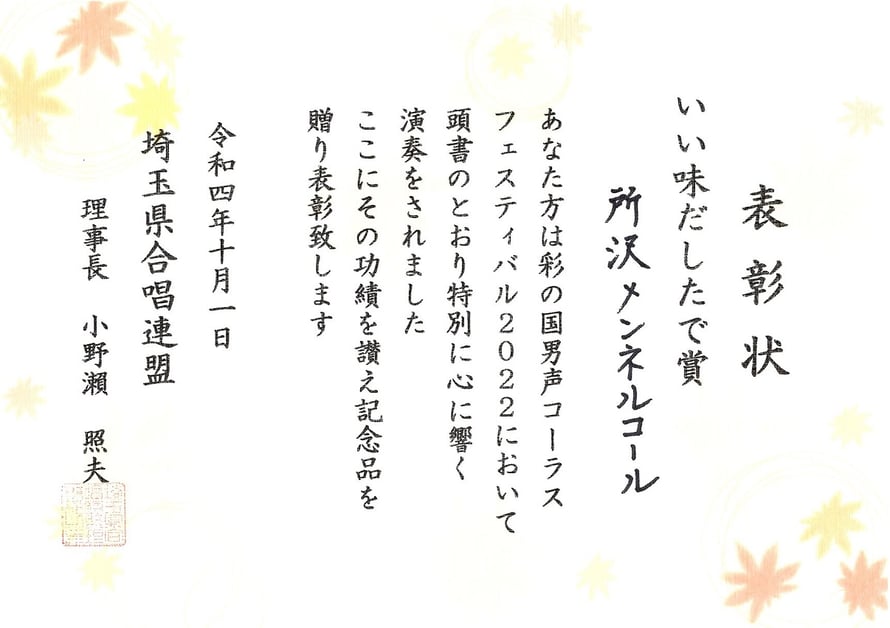 表彰状
いい味だしたで賞
所沢メンネルコール
あなた方は彩の国男声コーラス
フェスティバル2022において
頭書のとおり特別に心に響く
演奏をされました
ここにその功績を讃え記念品を
贈り表彰致します
令和四年十月一日
埼玉県合唱連盟
理事長 小野瀬 照夫